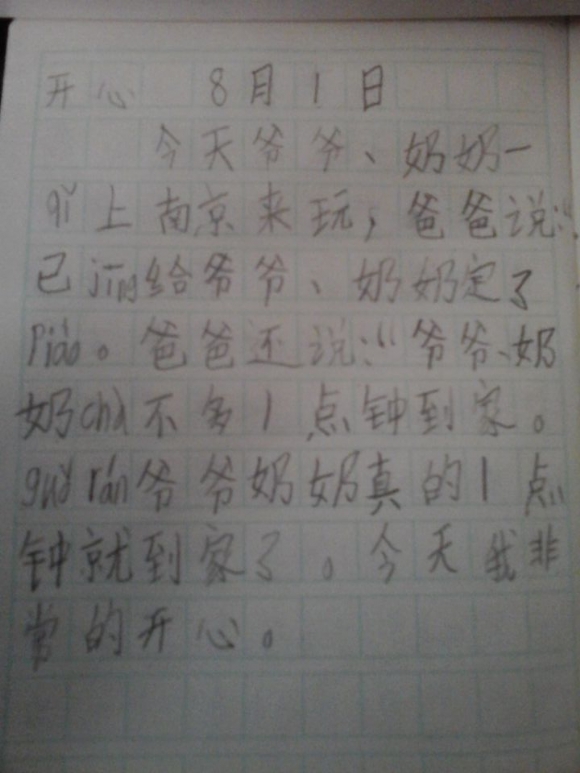 开心 8月1日
今天爷爷、奶奶一
qǐ上南京来玩,爸爸说:“
已jīng给爷爷、奶奶定了
Piào。爸爸还说:“爷爷、奶
奶chà不多1点钟到家。
guǒ rán爷爷奶奶真的1点
钟就到家了。今天我非
常的开心。